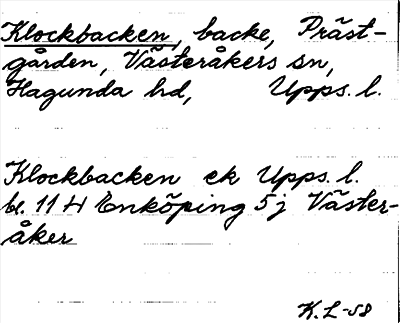 Klockbacken, backe, Präst-
gården, Västeråkers sn,
Hagunda hd, Upps. l.
Klockbacken ek Upps. l.
bl. 11 H Enköping 5 j Väster-
åker
K. L -58